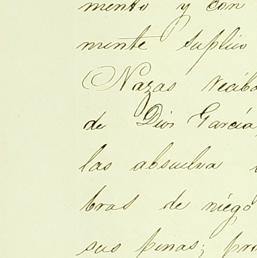 mento y con
mente suplico
Nazas recibo
de Dios García,
las absuelva
bras de riego
sus penas; pro